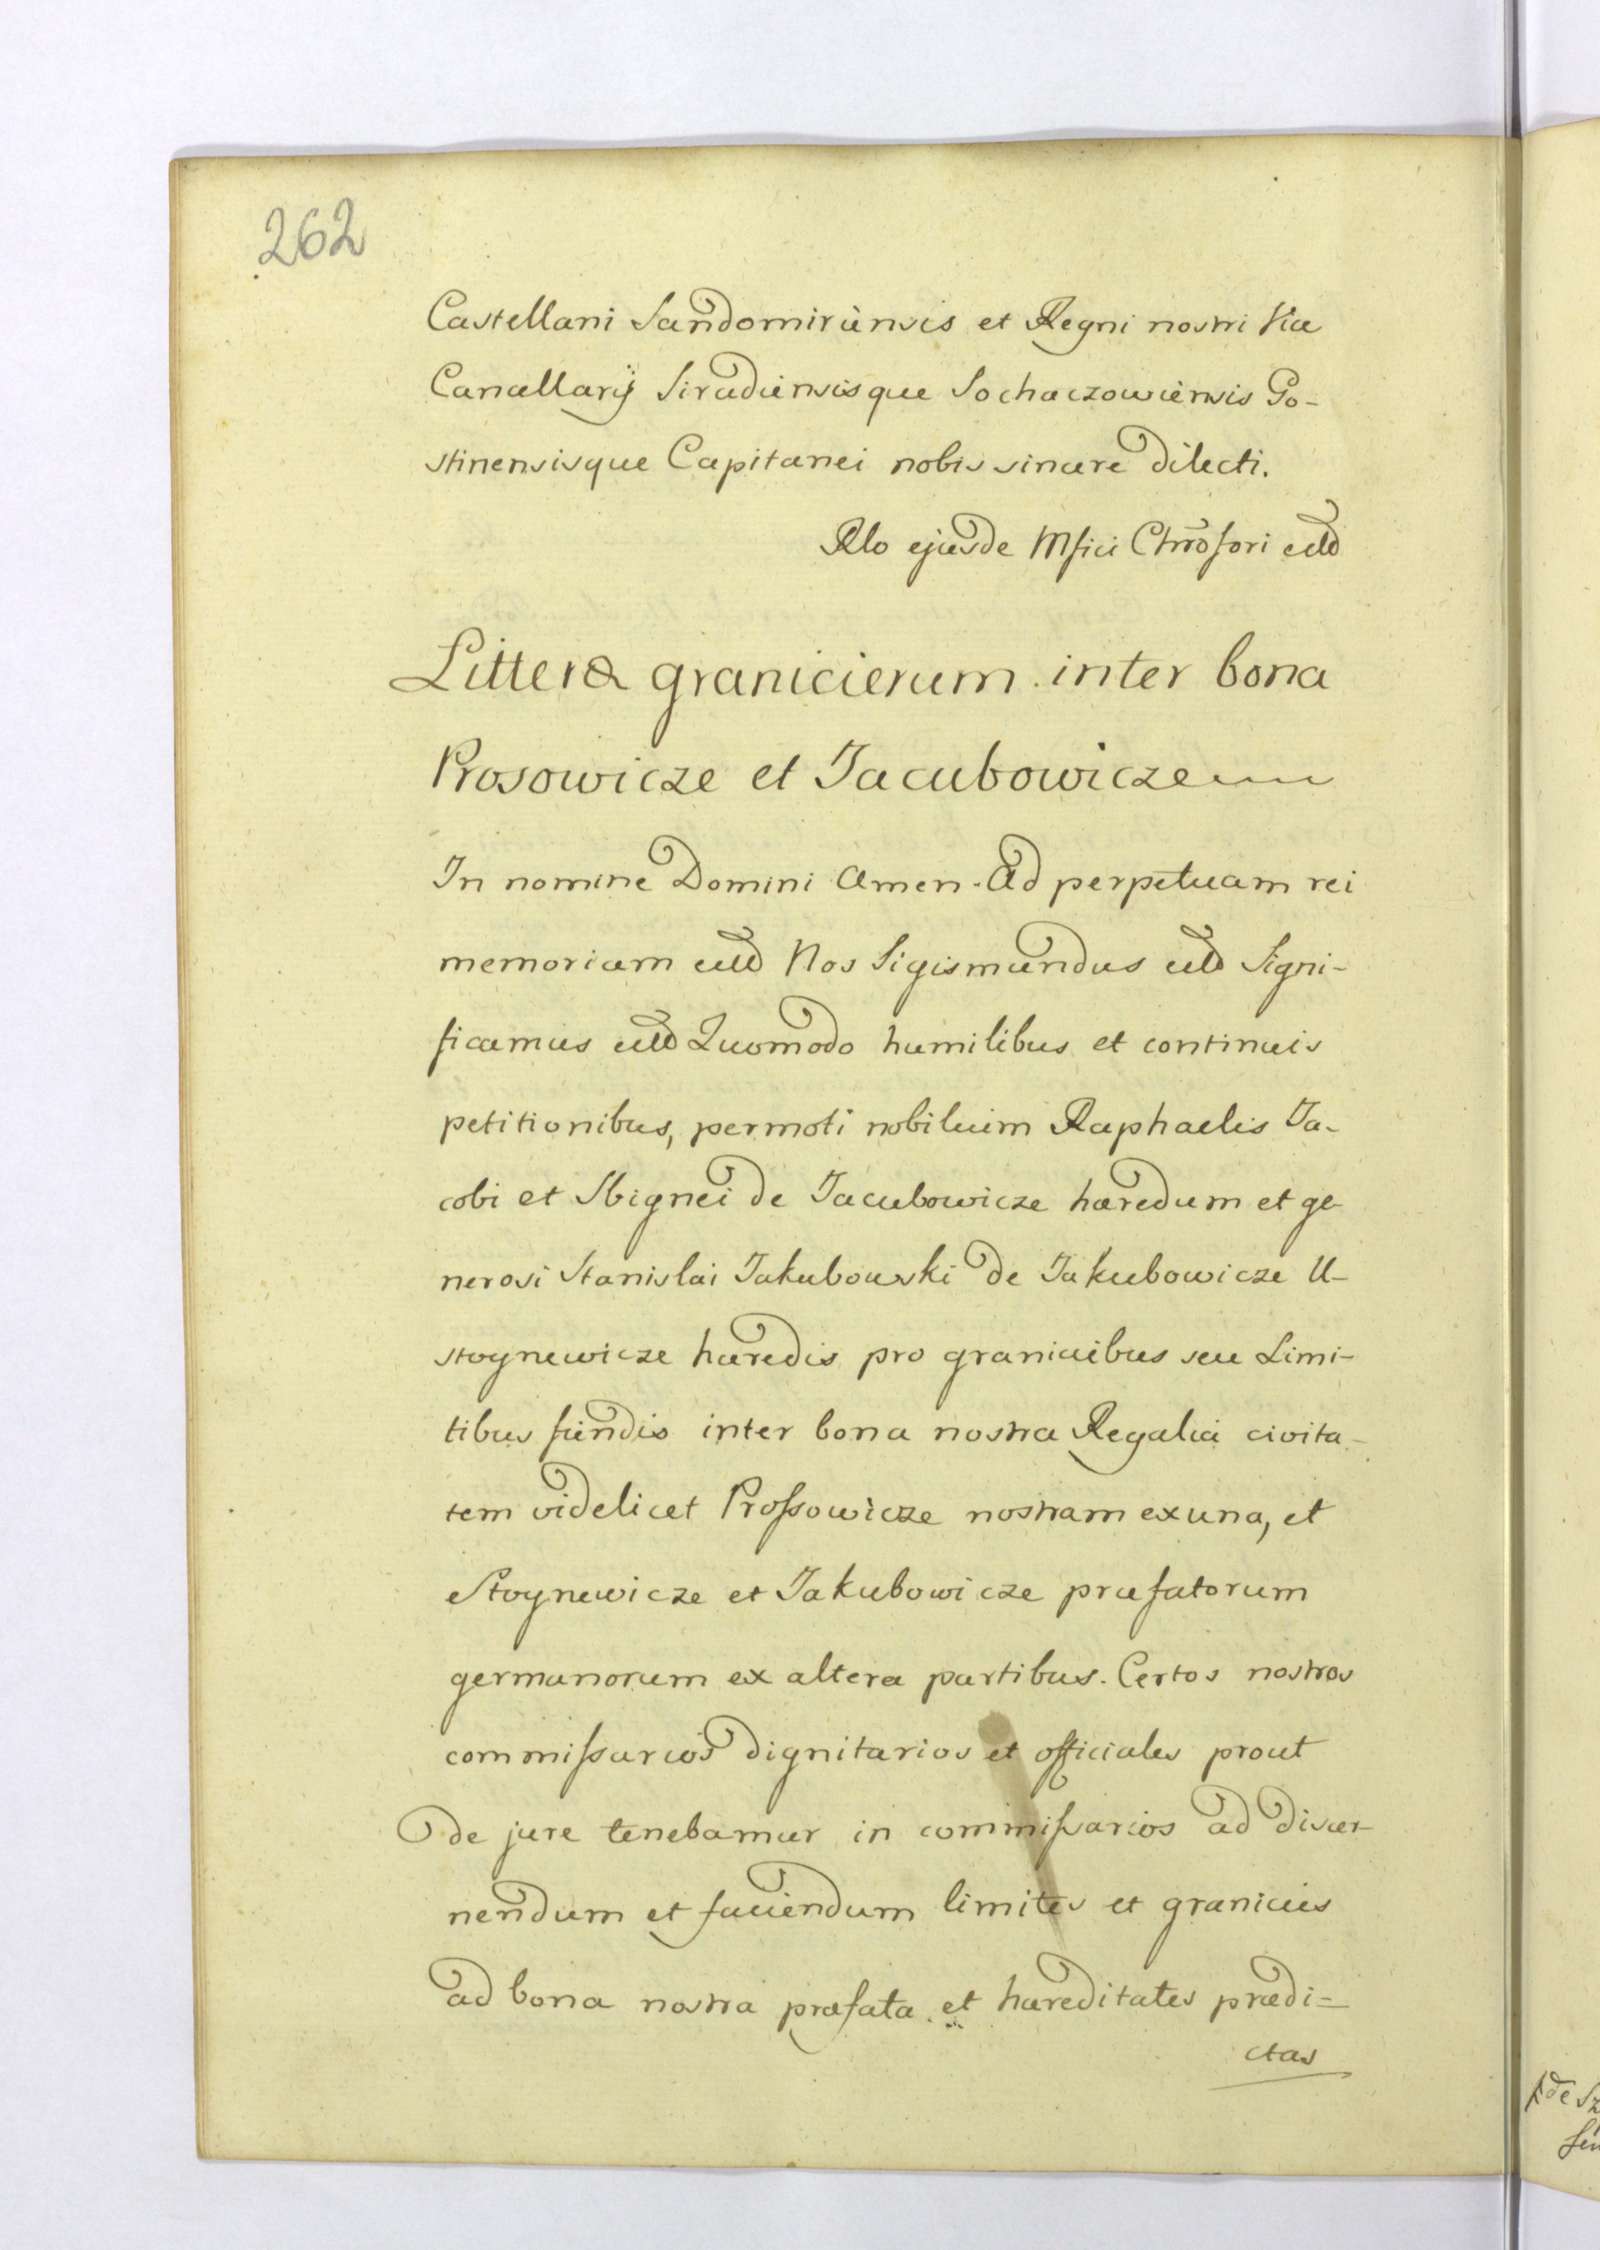 262
Castellani Sandomiriensis et Regni nostri Vice
Cancellarij Siradiensisque Sochaczowiensis Go-
stinensisque Capitanei nobis sincere dilecti.
Rlo ejusde Mfici Chrofori
Litteræ granicierum inter bona
Prosowicze et Jacubowicze
In nomine Domini Amen. Ad perpetuam rei
memoriam Nos Sigismundus Signi-
ficamus Quomodo humilibus et continuis
petitionibus, permoti nobilium Raphaelis Ja-
cobi et Sbignei de Jacubowicze hæredum et ge
nerosi Stanislai Jakubowski de Jakubowicze U-
stoynewicze hæredis pro granicibus seu Limi-
tibus fiendis inter bona nostra Regalia civita-
tem videlicet Prossowicze nostram ex una, et
Stoynewicze et Jakubowicze præfatorum
germanorum ex altera partibus. Certos nostros
commissarios dignitarios et officiales prout
de jure tenebamur in commissarios ad discer-
nendum et faciendum limites et granicies
ad bona nostra præfata et hæreditates prædi=
ctas